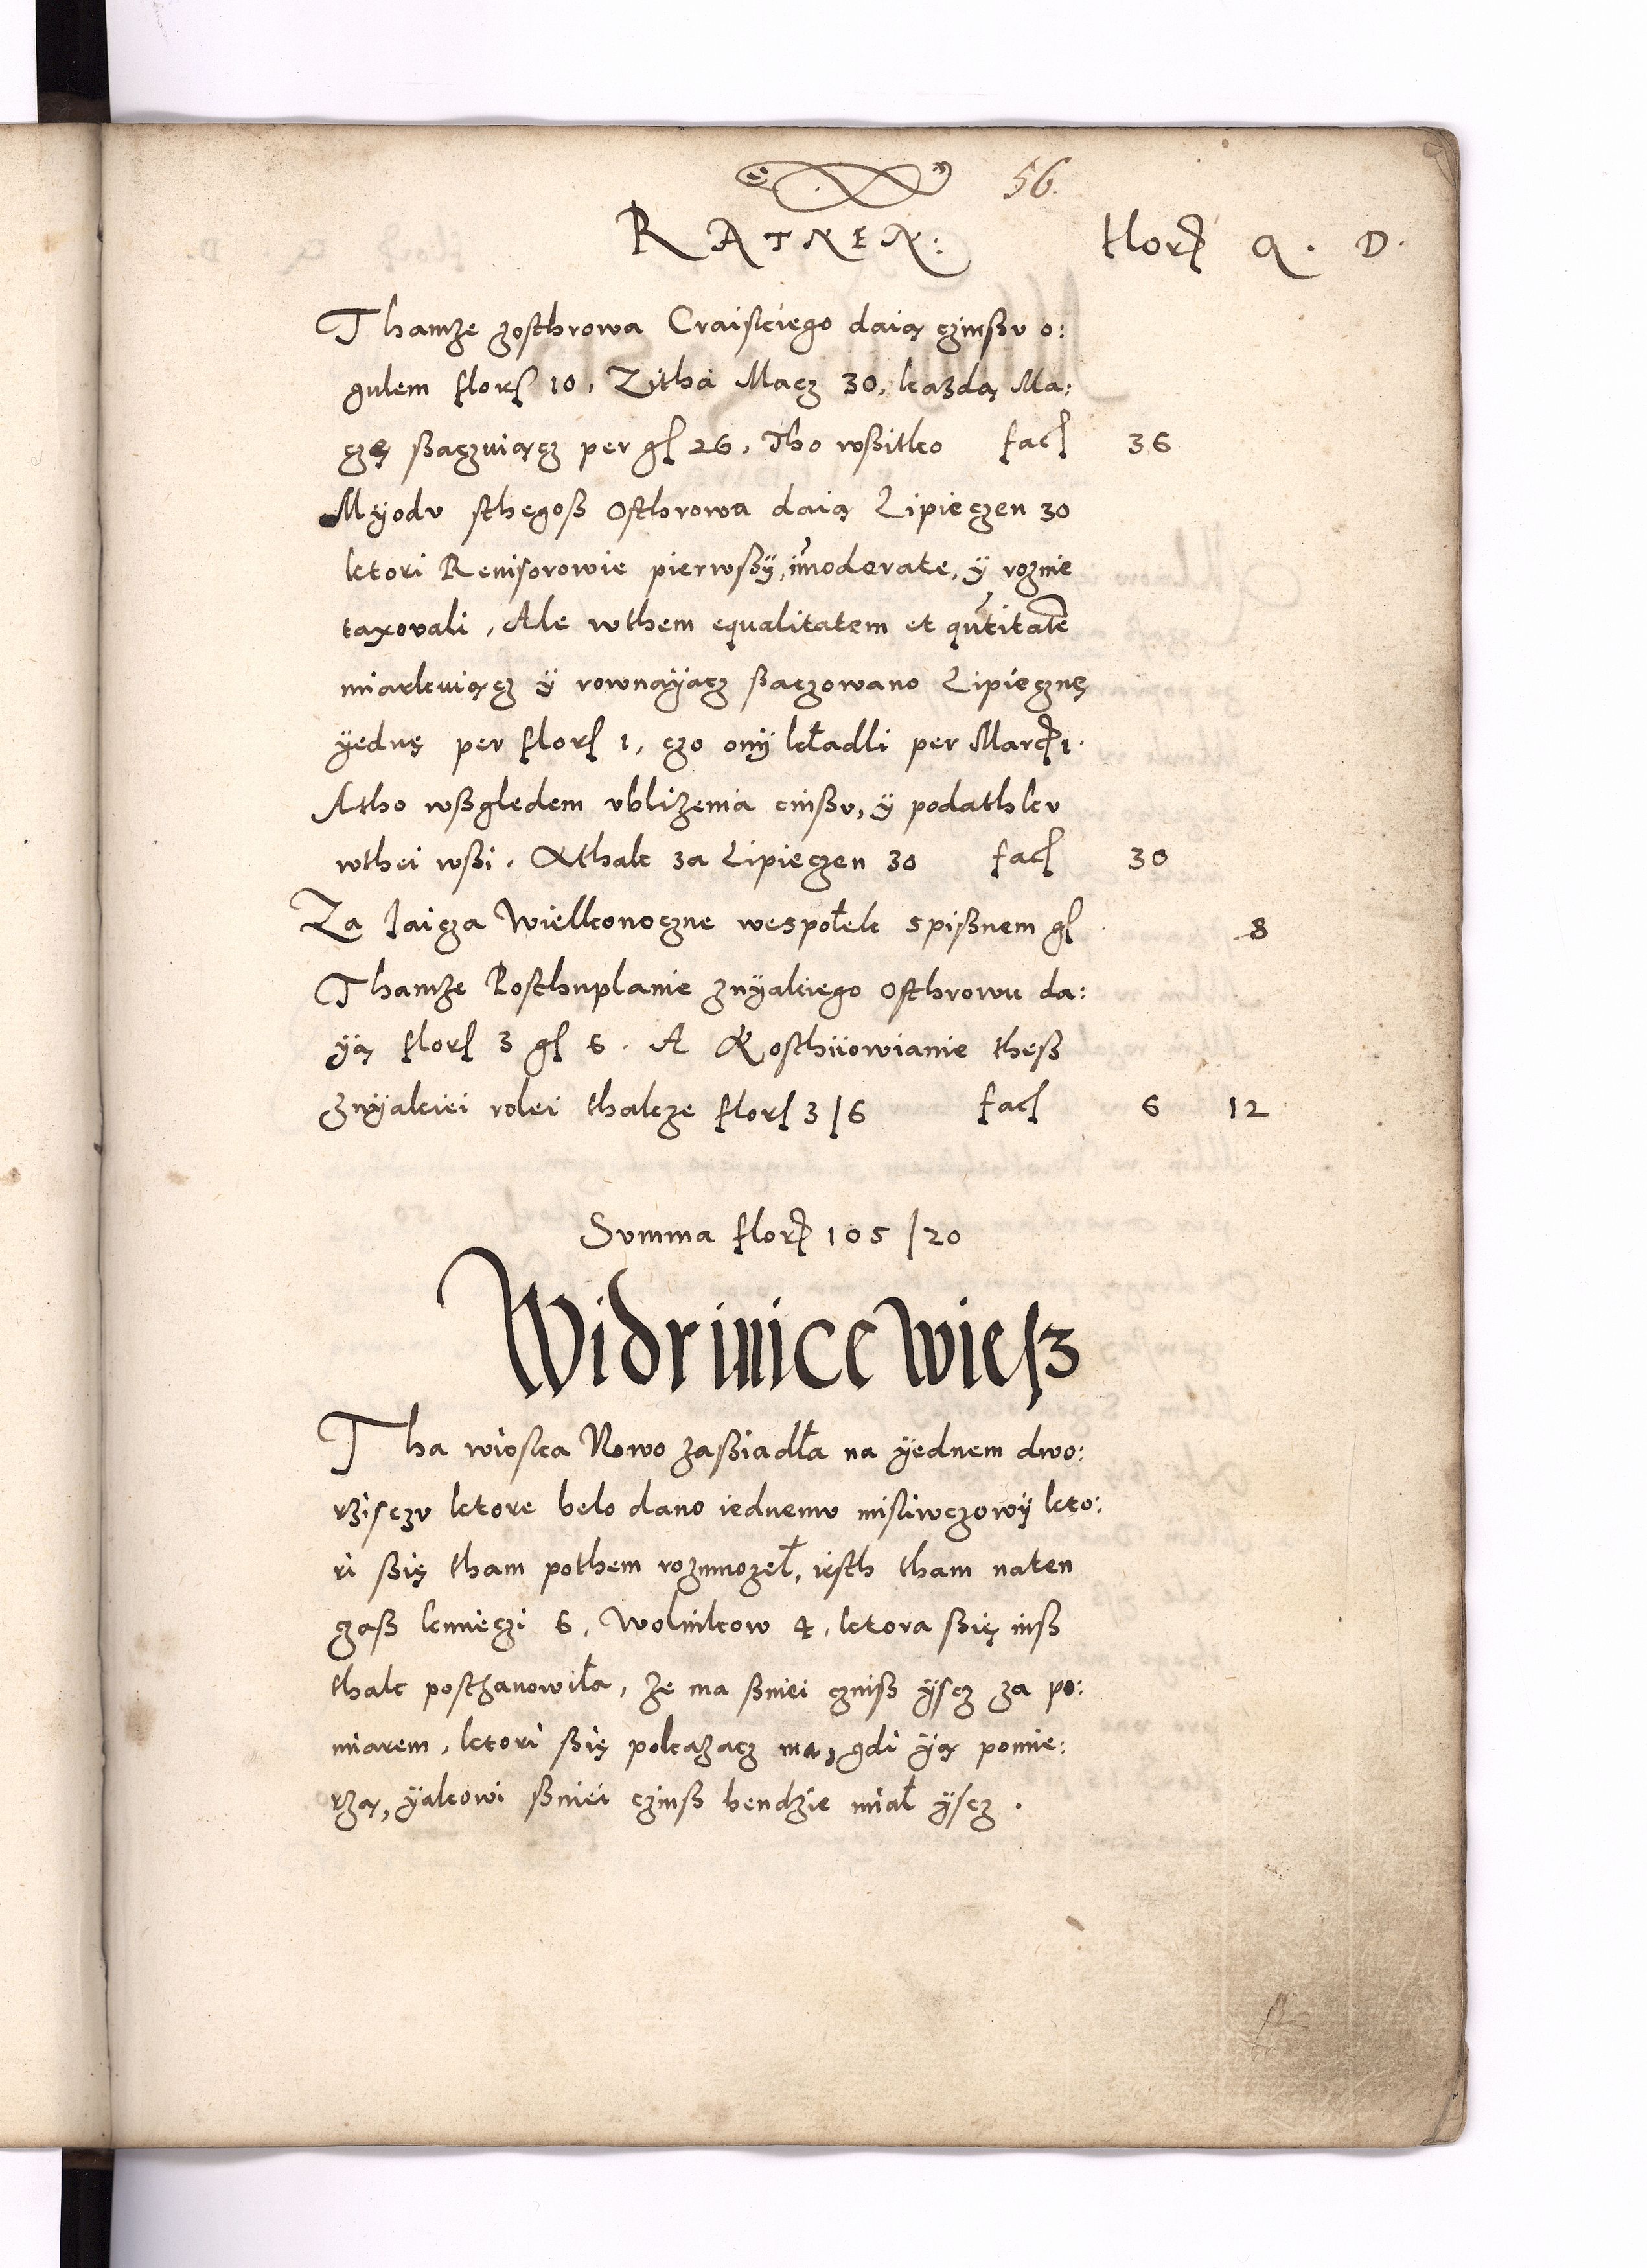 56.
RATNEN: flor G. D.
Thamże zosthrowa Craiskiego daią czinßu o:
gulem flor 10, Zitha Macz 30, każdą Ma:
czę ßaczuiącz per gl 26, Tho wßitko fac 36
Myodu sthegoß Osthrowa daią Lipieczen 30
ktori Reuisorowie pierwßÿ, im̃oderate, ÿ roznie
taxovali, Ale wthem equalitatem et qũtitatẽ
miarkuiącz ÿ rownaÿącz ßaczowano Lipiecznę
ÿednę per flor 1, czo onÿ kładli per Marc 1.
Atho wßgledem vbliżenia cinßu, ÿ podathku
wthei wßi. Athak za Lipieczen 30 fac 30
Za Jaicza Wielkonoczne wespołek spißnem gl 8
Thamże Posthuplanie znÿakiego Osthrowu da:
ÿą flor 3 gl 6. A Kosthiiowianie theß
znÿakiei rolei thakże flor 3/6 fac 6 12
Summa flor 105/20
Widrinice Wiesz
Tha wioska Nowo zaßiadła na ÿednem dwo:
rzisczu ktore belo dano iednemu misliwczowÿ kto:
ri ßię tham pothem rozmnozeł, iesth tham naten
czaß kmieczi 6, Wolnikow 4, ktora ßię inß
thak posthanowiła, że ma ßniei czniß ÿscz za po:
miarem, ktori ßię pokazacz ma, gdi ÿą pomie:
rzą, ÿakowi ßniei czinß bendzie miał ÿscz.